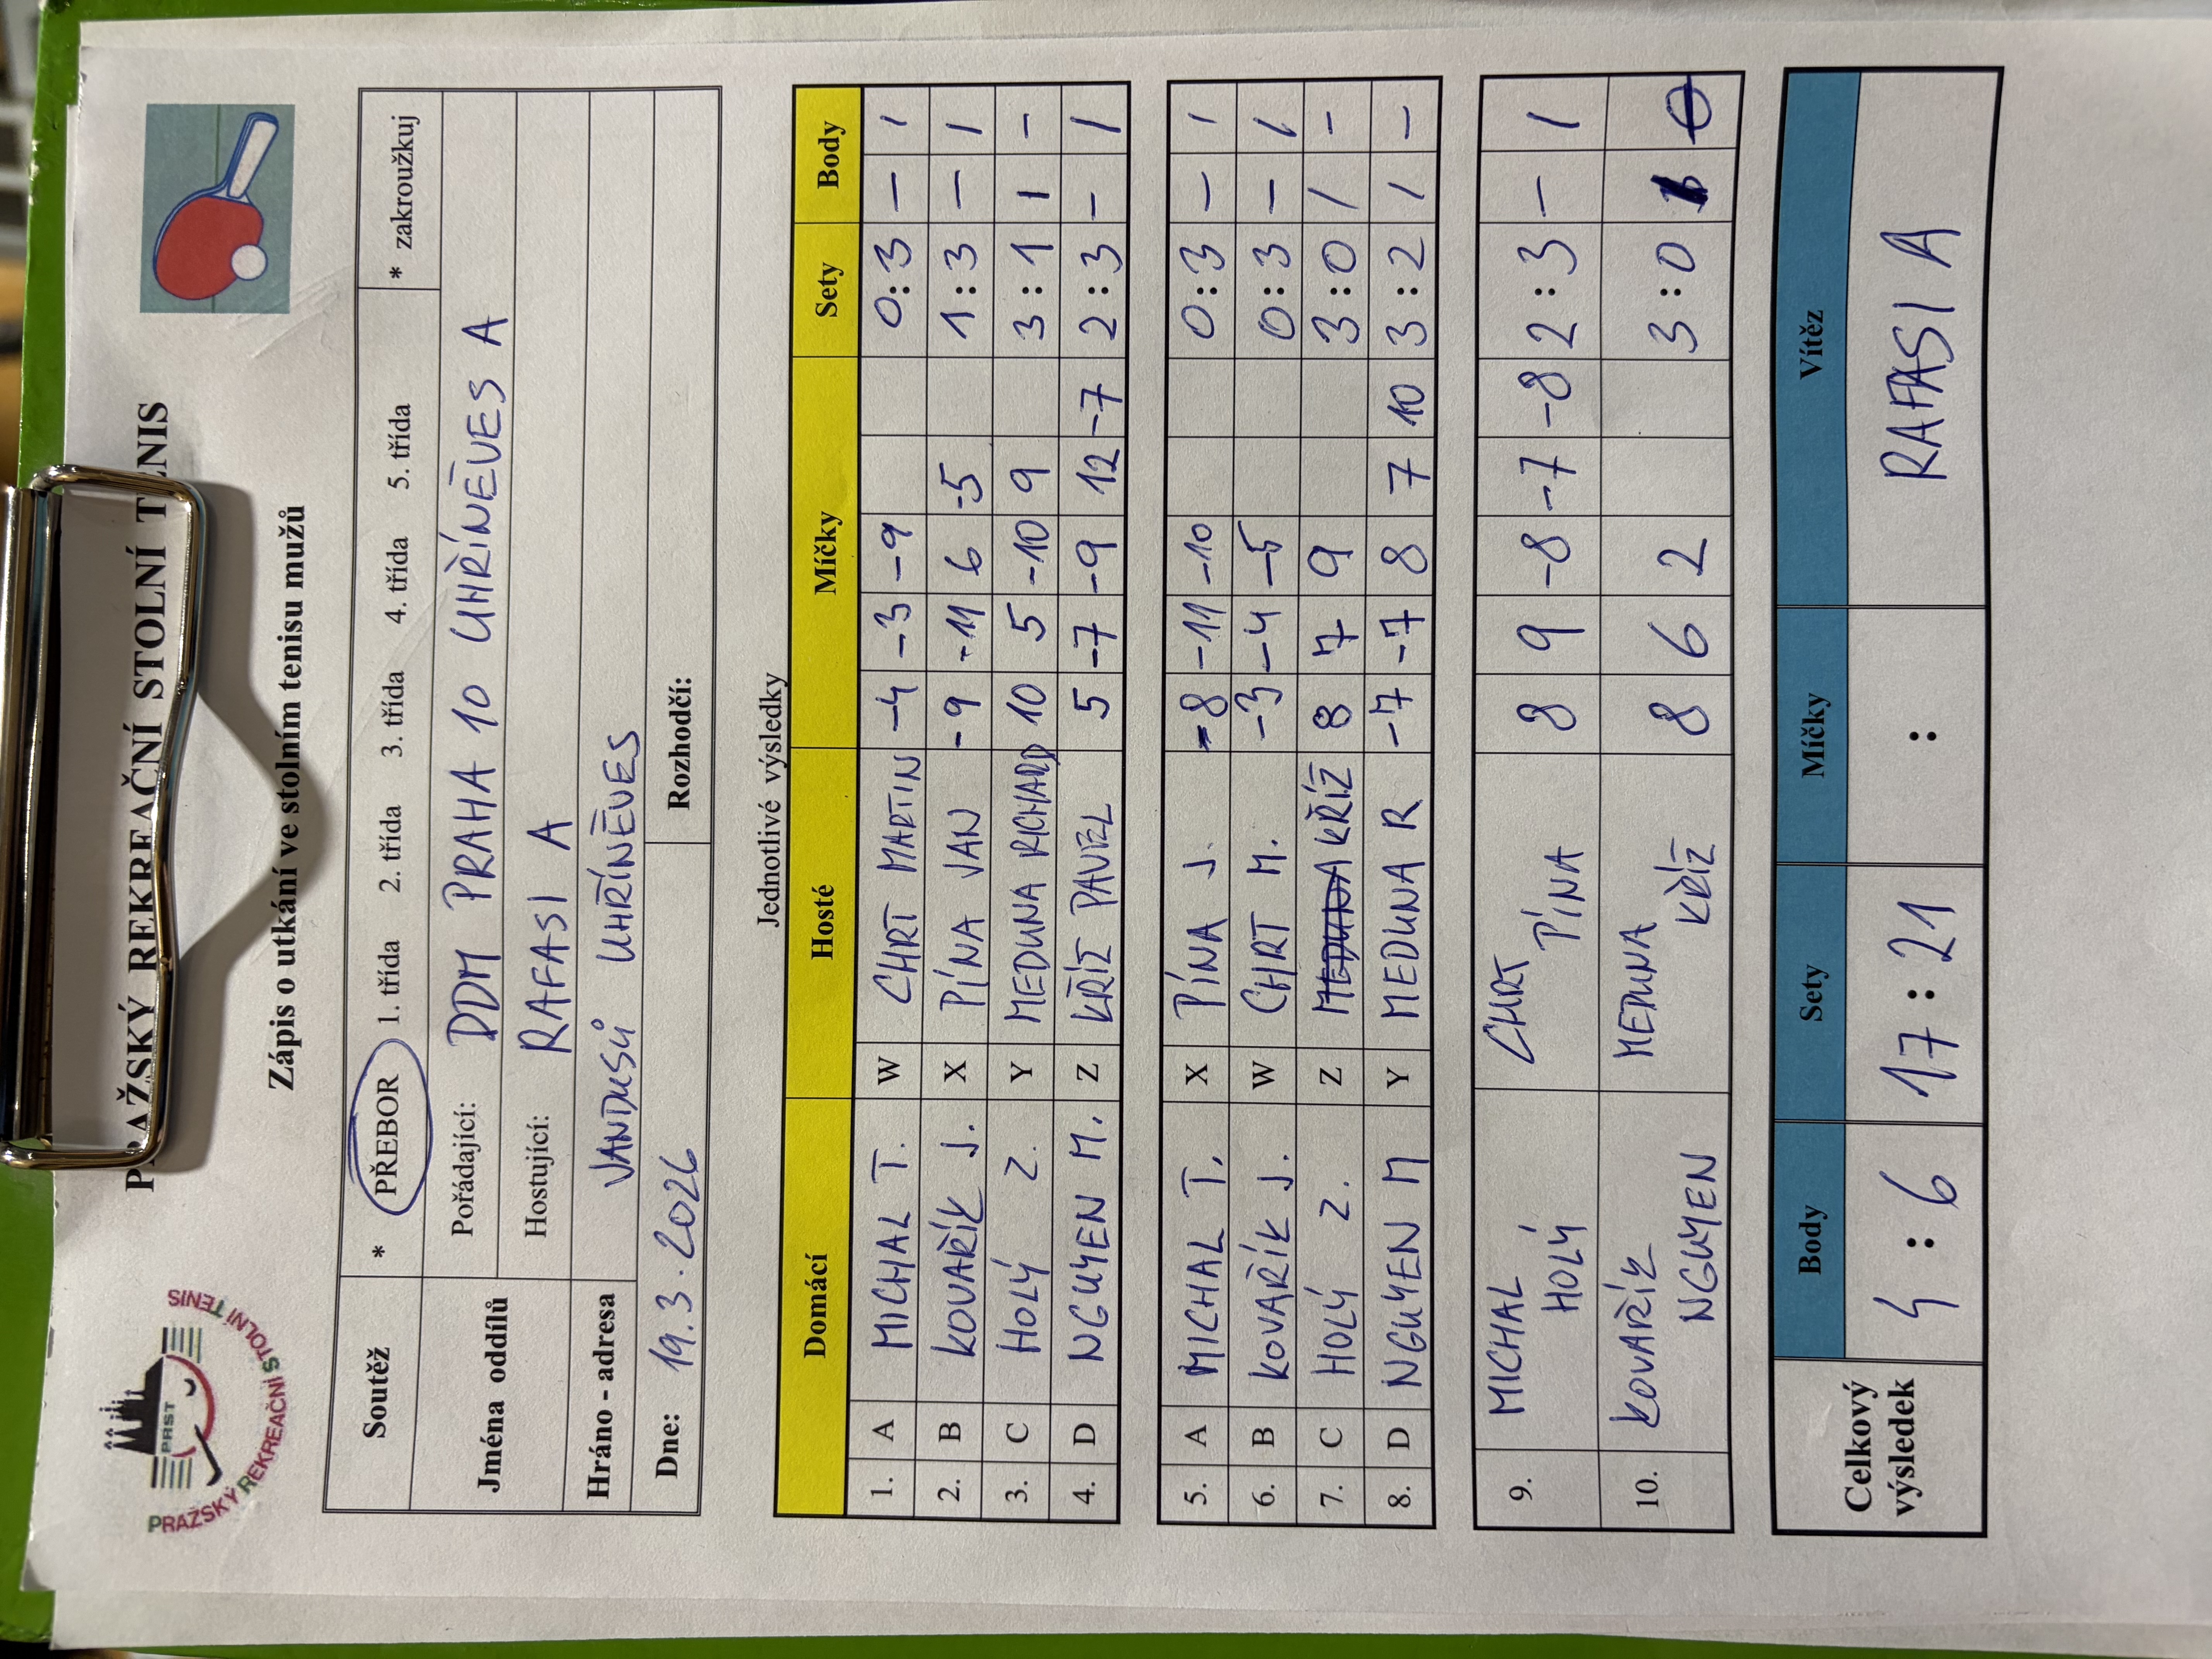 PRAŽSKÝ REKREAČNÍ STOLNÍ TENIS
PRAŽSKÝ REKREAČNÍ STOLNÍ TENIS
PRST
Zápis o utkání ve stolním tenisu mužů
Soutěž * PŘEBOR 1. třída 2. třída 3. třída 4. třída 5. třída * zakroužkuj
Jména oddílů Pořádající: DDM PRAHA 10 UHŘÍNĚVES A
Hostující: RAFASI A
Hráno - adresa VANDUSŮ UHŘÍNĚVES
Dne: 19.3.2026 Rozhodčí:
Jednotlivé výsledky
Domácí Hosté Míčky Sety Body
1. A MICHAL T. W CHRT MARTIN -4 -3 -9 0:3 - 1
2. B KOVAŘÍK J. X PÍNA JAN -9 -11 6 -5 1:3 - 1
3. C HOLÝ Z. Y MEDUNA RICHARD 10 5 -10 9 3:1 1 -
4. D NGUYEN M. Z KŘÍŽ PAVEL 5 -7 -9 12 -7 2:3 - 1
5. A MICHAL T. X PÍNA J. -8 -11 -10 0:3 - 1
6. B KOVAŘÍK J. W CHRT M. -3 -4 -5 0:3 - 1
7. C HOLÝ Z. Z MEDUNA KŘÍŽ 8 7 9 3:0 1 -
8. D NGUYEN M Y MEDUNA R -7 -7 8 7 10 3:2 1 -
9. MICHAL HOLÝ CHRT PÍNA 8 9 -8 -7 -8 2:3 - 1
10. KOVAŘÍK NGUYEN MEDUNA KŘÍŽ 8 6 2 3:0 1 0
Celkový výsledek Body Sety Míčky Vítěz
4:6 17:21 : RAFASI A